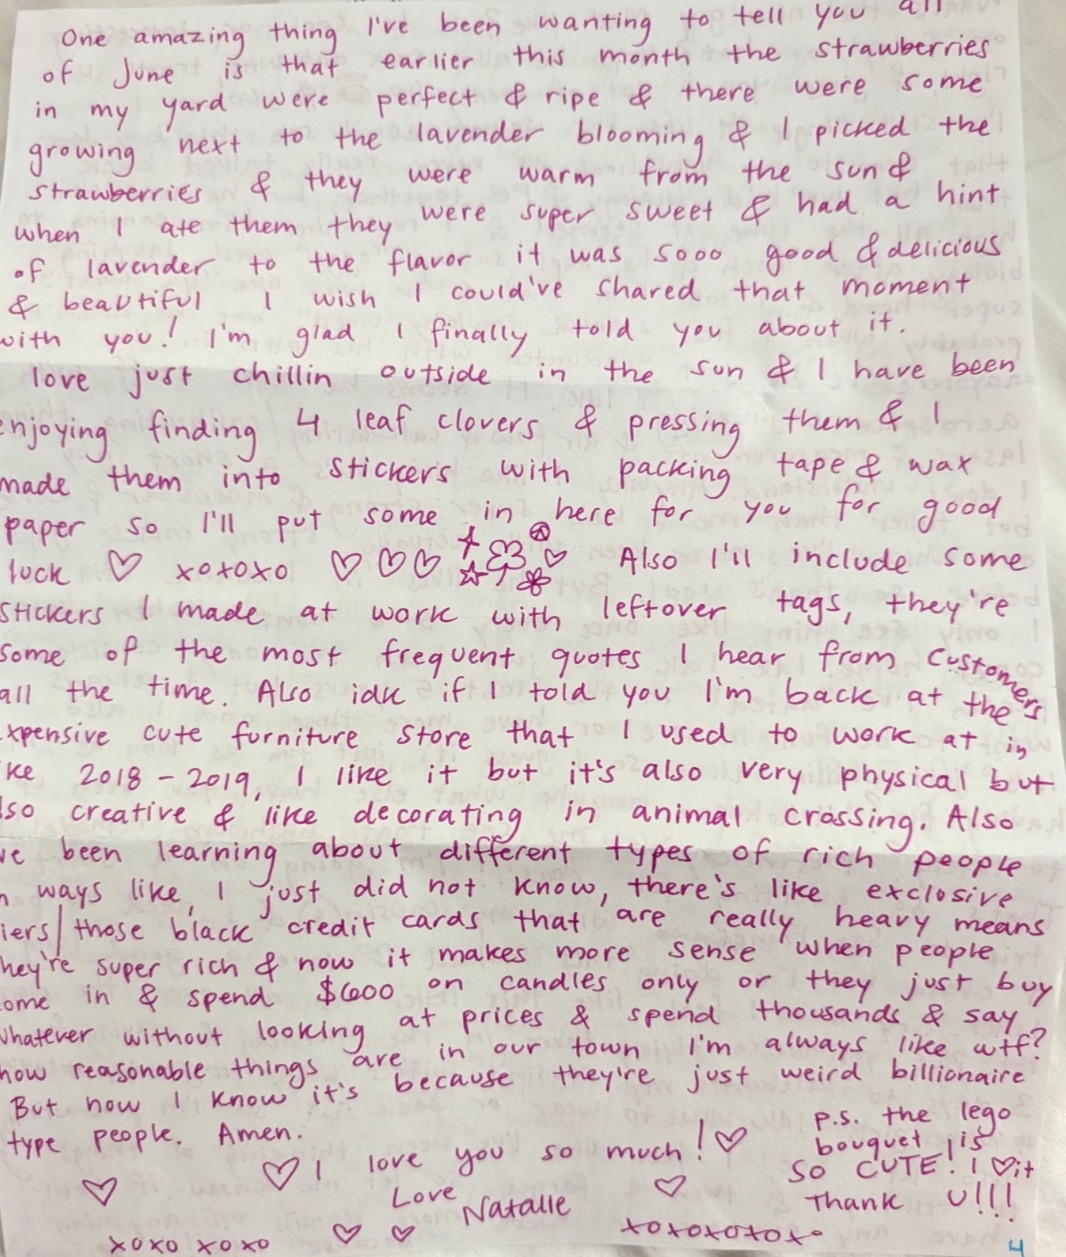 One amazing thing I've been wanting to tell you all
of June is that earlier this month the strawberries
in my yard were perfect & ripe & there were some
growing next to the lavender blooming & I picked the
strawberries & they were warm from the sun &
when I ate them they were super sweet & had a hint
of lavender to the flavor it was sooo good & delicious
& beautiful I wish I could've shared that moment
with you! I'm glad I finally told you about it.
love just chillin outside in the sun & I have been
enjoying finding 4 leaf clovers & pressing them & I
made them into stickers with packing tape & wax
paper so I'll put some in here for you for good
luck ♡ xoxoxo ♡♡♡ ♡ Also I'll include some
stickers I made at work with leftover tags, they're
some of the most frequent quotes I hear from customers
all the time. Also idk if I told you I'm back at the
xpensive cute furniture store that I used to work at in
ke 2018 - 2019, I like it but it's also very physical but
lso creative & like decorating in animal crossing. Also
ve been learning about different types of rich people
n ways like, I just did not know, there's like exclosive
iers/those black credit cards that are really heavy means
hey're super rich & now it makes more sense when people
ome in & spend $600 on candles only or they just buy
whatever without looking at prices & spend thousands & say
how reasonable things are in our town I'm always like wtf?
But now I know it's because they're just weird billionaire
type people. Amen.
♡ I love you so much! ♡
♡ Love ♡
Natalle
xoxo xoxo ♡ ♡ xoxoxoxox
p.s. the lego
bouquet is
SO CUTE! I ♡ it
Thank U!!!
4